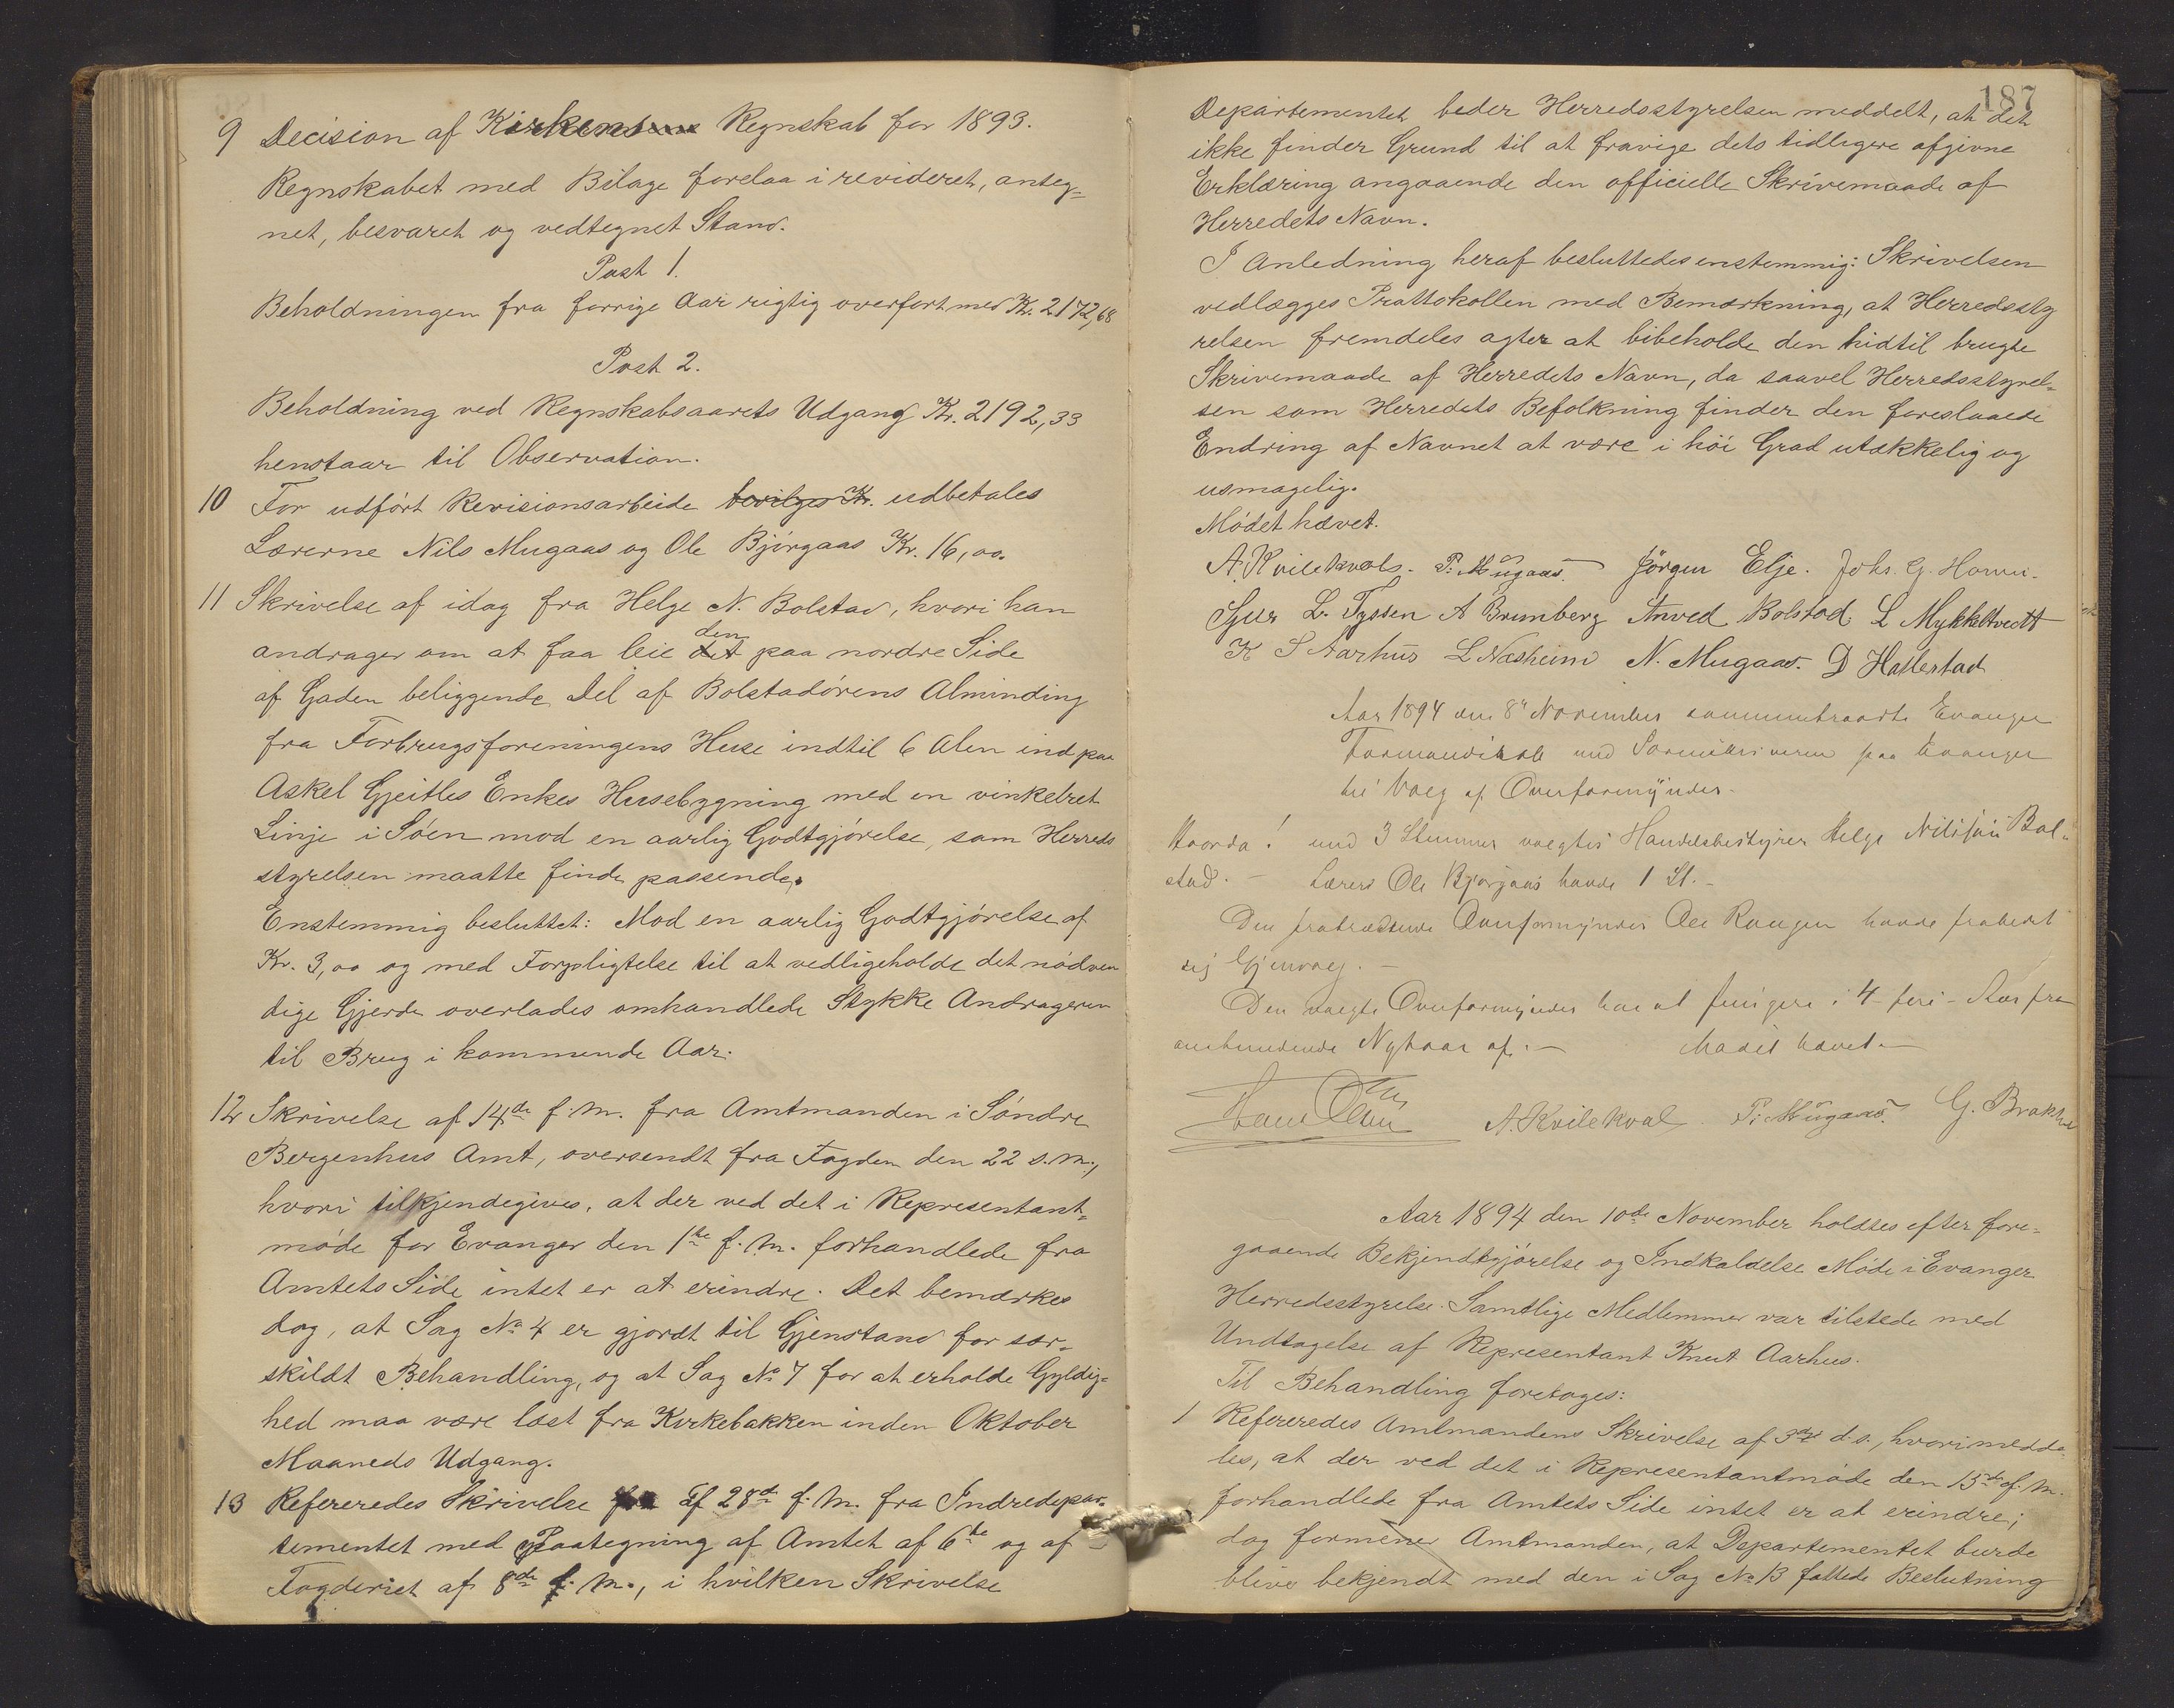 9 Decision af Kirkens Regnskab for 1893.
Regnskabet med Bilage forelaa i revideret, anteg=
net, besvaret og vedtegnet Stand.
Post 1.
Beholdningen fra forrige Aar rigtig overført med Kr. 2172,68
Post 2.
Beholdning ved Regnskabsaarets Udgang Kr. 2192,33
henstaar til Observation.
10 For udført Revisionsarbeide bevilges Kr. udbetales
Lærerne Nils Mugaas og Ole Bjørgaas Kr. 16,00.
11 Skrivelse af idag fra Helge N. Bolstad, hvori han
andrager om at faa leie det den paa nordre Side
af Gaden beliggende Del af Bolstadørens Alminding
fra Forbrugsforeningens Huse indtil 6 Alen ind paa
Askel Gjeitles Enkes Husebygning med en vinkelret
Linje i Søen mod en aarlig Godtgjørelse, som Herreds
styrelsen maatte finde passende.
Enstemmig besluttet: Mod en aarlig Godtgjørelse af
Kr. 3,00 og med Forpligtelse til at vedligeholde det nødven
dige Gjerde overlades omhandlede Stykke Andrageren
til Brug i kommende Aar.
12 Skrivelse af 14de f. M. fra Amtmanden i Søndre
Bergenhus Amt, oversendt fra Fogden den 22 s. M.,
hvori tilkjendegives, at der ved det i Representant=
møde for Evanger den 1ste f. M. forhandlede fra
Amtets Side intet er at erindre. Det bemærkes
dog, at Sag No 4 er gjordt til Gjenstand for sær-
skildt Behandling, og at Sag No 7 for at erholde Gyldig=
hed maa være læst fra Kirkebakken inden Oktober
Maaneds Udgang.
13 Refereredes Skrivelse fra af 28de f. M. fra Indredepar-
tementet med Paategning af Amtet af 6te og af
Fogderiet af 8de f. M., i hvilken Skrivelse
187
Departementet beder Herredsstyrelsen meddelt, at det
ikke finder Grund til at fravige dets tidligere afgivne
Erklæring angaaende den officielle Skrivemaade af
Herredets Navn.
I Anledning heraf besluttedes enstemmig: Skrivelsen
vedlægges Prottokollen med Bemærkning, at Herredssty
relsen fremdeles agter at bibeholde den hidtil brugte
Skrivemaade af Herredets Navn, da saavel Herredsstyrel=
sen som Herredets Befolkning finder den foreslaaede
Endring af Navnet at være i høi Grad utækkelig og
usmagelig.
Mødet hævet.
A. Kvilekval. P. Mugaas. Jörgen Elje. Johs. G. Horvei.
Sjur L. Tyssen A Brunberg Anved Bolstad. L Mykkeltvedt
K S Aarhus L Næsheim N. Mugaas. D Hallestad
Aar 1894 den 8de November sammentraadte Evanger
Formandskab med Sorenskriveren paa Evanger
til Valg af Overformynder.
Hvorda! med 3 Stemmer valgtes Handelsbestyrer Helge Nilssen Bol=
stad. – Lærer Ole Bjørgaas havde 1 St. –
Den fratrædende Overformynder Ole Rongen havde frabedt
sig Gjenvalg. –
Den valgte Overformynder har at fungere i 4 – fire – Aar fra
anstundende Nytaar af. – Mødet hævet. –
A. Kvilekval P. Mugaas. G. Brakhus
Aar 1894 den 10de November holdtes efter fore-
gaaende Bekjendtgjørelse og Indkaldelse Møde i Evanger
Herredsstyrelse. Samtlige Medlemmer var tilstede med
Undtagelse af Representant Knut Aarhus.
Til Behandling foretoges:
1 Refereredes Amtmandens Skrivelse af 3die d. s., hvori medde-
les, at der ved det i Representantmøde den 15de f. M.
forhandlede fra Amtets Side intet er at erindre;
dog formener Amtmanden, at Departementet burde
blive bekjendt med den i Sag No 13 fattede Beslutning